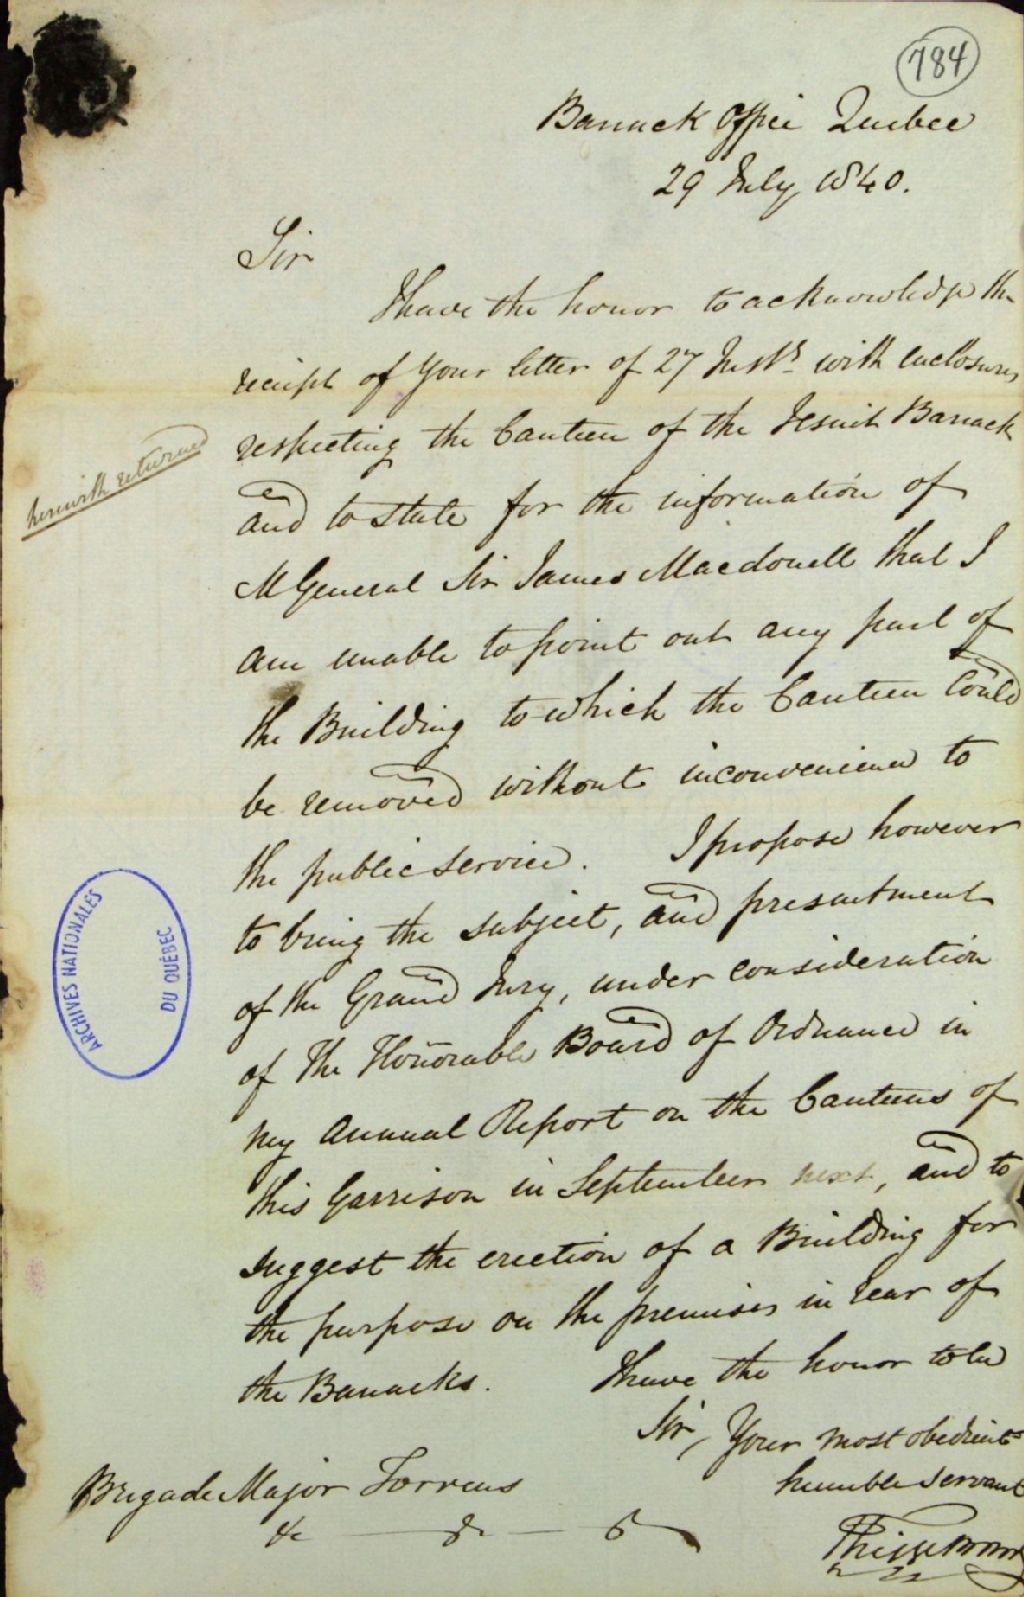 784
Barrack Office Quebec
29 July 1840.
Sir
I have the honor to acknowledge the
receipt of your letter of 27 Inst. with enclosures
herewith returned
respecting the Canteen of the Jesuit Barrack
and to state for the information of
M General Sir James Macdonell that I
am unable to point out any part of
the Building to which the Canteen could
be removed without inconvenience to
the public service. I propose however
to bring the subject, and presentment
of the Grand Jury, under consideration
of the Honorable Board of Ordnance in
my Annual Report on the Canteens of
this Garrison in September next, and to
suggest the erection of a Building for
the purpose on the premises in rear of
the Barracks. I have the honor to be
Sir, Your most obedient
humble servant
Brigade Major Torrens
&c — & — &
ARCHIVES NATIONALES
DU QUÉBEC